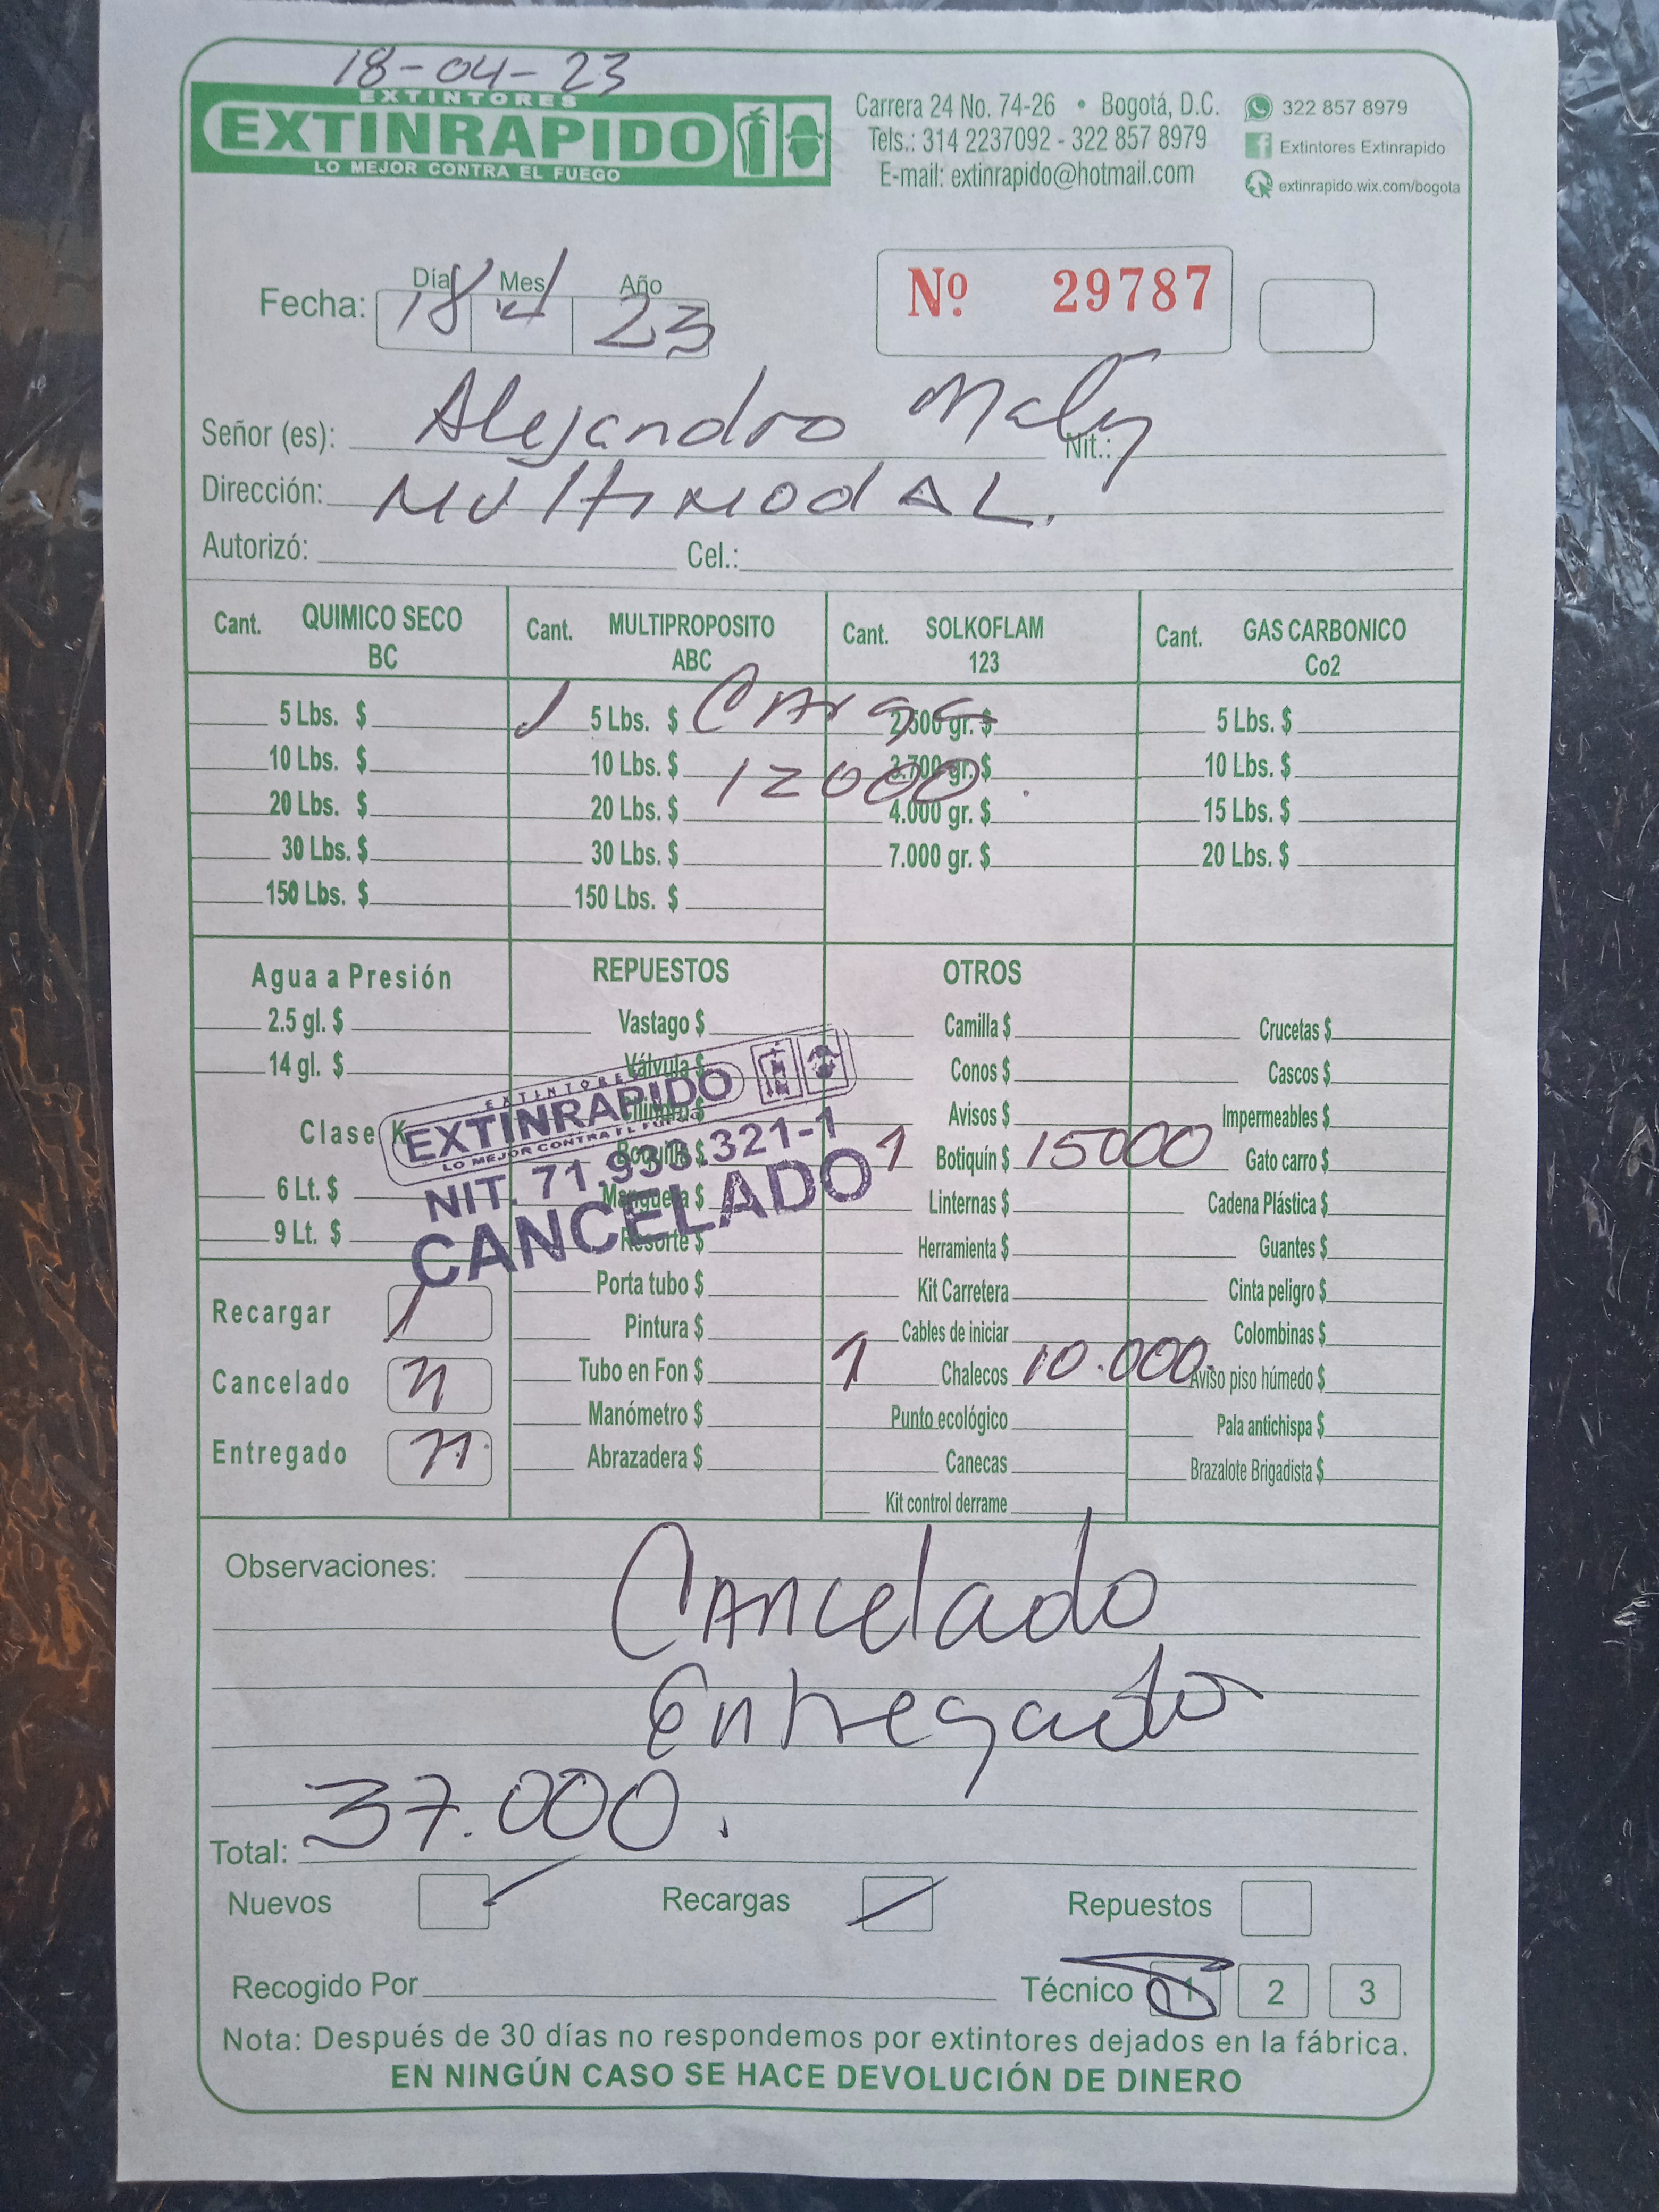 18-04-23
EXTINTORES
EXTINRAPIDO
LO MEJOR CONTRA EL FUEGO
Carrera 24 No. 74-26 • Bogotá, D.C.
Tels.: 314 2237092 - 322 857 8979
E-mail: extinrapido@hotmail.com
322 857 8979
Extintores Extinrapido
extinrapido.wix.com/bogota
Fecha: Día 18 Mes 4 Año 23
Nº 29787
Señor (es): Alejandro Nit.:
Dirección: Multimodal.
Autorizó: Cel.:
Cant. QUIMICO SECO BC
5 Lbs. $
10 Lbs. $
20 Lbs. $
30 Lbs. $
150 Lbs. $
Cant. MULTIPROPOSITO ABC
1 5 Lbs. $ Carga
10 Lbs. $ 12000.
20 Lbs. $
30 Lbs. $
150 Lbs. $
Cant. SOLKOFLAM 123
2.500 gr. $
3.700 gr. $
4.000 gr. $
7.000 gr. $
Cant. GAS CARBONICO Co2
5 Lbs. $
10 Lbs. $
15 Lbs. $
20 Lbs. $
Agua a Presión
2.5 gl. $
14 gl. $
Clase K
6 Lt. $
9 Lt. $
Recargar
Cancelado
Entregado
REPUESTOS
Vastago $
Válvula $
Manguera $
Resorte $
Porta tubo $
Pintura $
Tubo en Fon $
Manómetro $
Abrazadera $
EXTINTORES
EXTINRAPIDO
LO MEJOR CONTRA EL FUEGO
NIT. 71.933.321-1
CANCELADO
OTROS
Camilla $
Conos $
Avisos $
1 Botiquín $ 15000
Linternas $
Herramienta $
Kit Carretera
Cables de iniciar
1 Chalecos 10.000
Punto ecológico
Canecas
Kit control derrame
Crucetas $
Cascos $
Impermeables $
Gato carro $
Cadena Plástica $
Guantes $
Cinta peligro $
Colombinas $
Aviso piso húmedo $
Pala antichispa $
Brazalote Brigadista $
Observaciones: Cancelado
Entregado
Total: 37.000.
Nuevos Recargas Repuestos
Recogido Por Técnico 1 2 3
Nota: Después de 30 días no respondemos por extintores dejados en la fábrica.
EN NINGÚN CASO SE HACE DEVOLUCIÓN DE DINERO